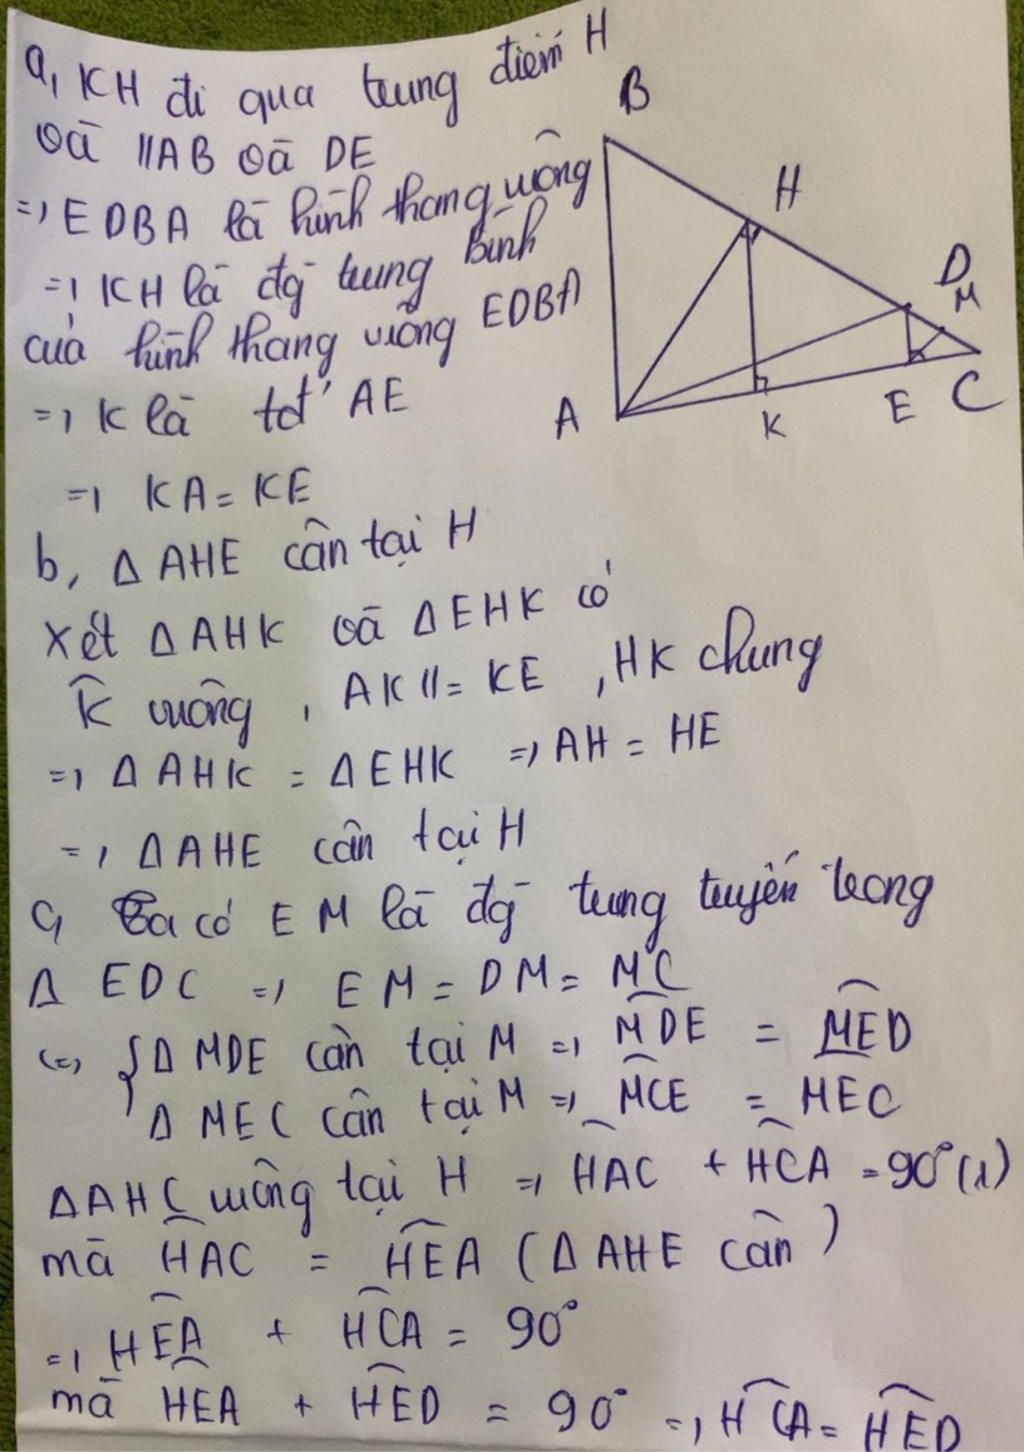 a, KH đi qua trung điểm H
và //AB và DE
=> EDBA là hình thang vuông
=> KH là đg trung bình
của hình thang vuông EDBA
=> K là tđ' AE
=> KA = KE
b, Δ AHE cân tại H
Xét Δ AHK và Δ EHK có
K̂ vuông, AK //= KE, HK chung
=> Δ AHK = Δ EHK => AH = HE
=> Δ AHE cân tại H
c, Ta có EM là đg trung tuyến trong
Δ EDC => EM = DM = MC
(=) { Δ MDE cân tại M => MDE = MED
Δ MEC cân tại M => MCE = MEC
Δ AHC vuông tại H => HAC + HCA = 90° (1)
mà HAC = HEA (Δ AHE cân)
=> HEA + HCA = 90°
mà HEA + HED = 90° => HCA = HED
B
H
D
M
A
K
E
C